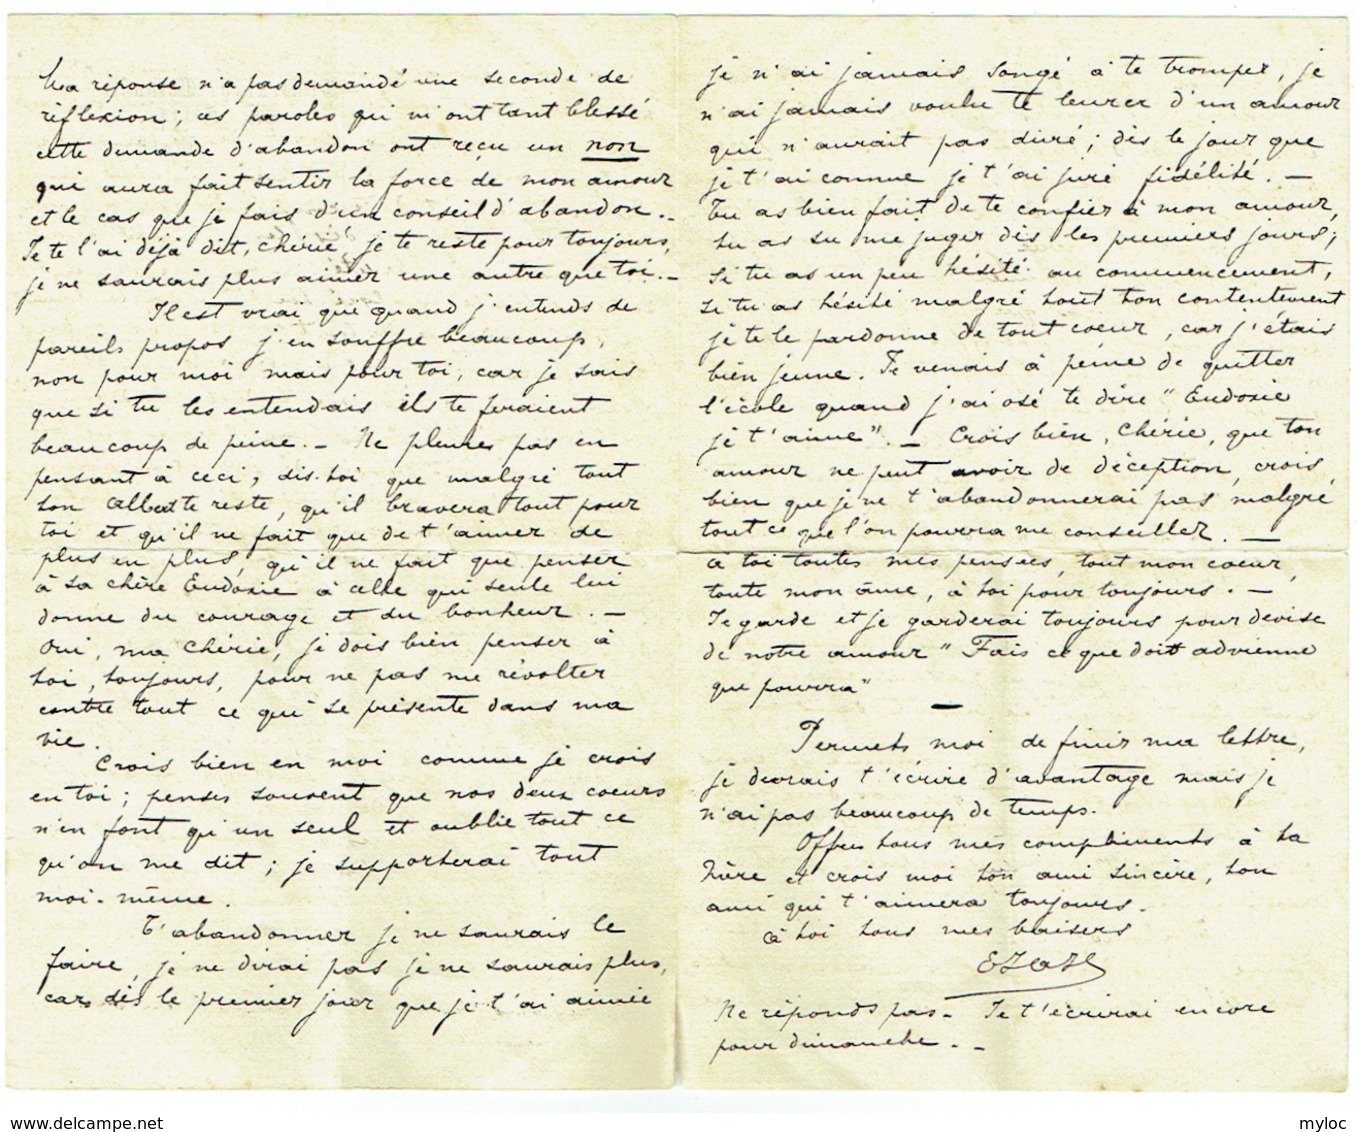 Ma réponse n'a pas demandé une seconde de
réflexion; ces paroles qui m'ont tant blessé
cette demande d'abandon ont reçu un non
qui aura fait sentir la force de mon amour
et le cas que je fais d'un conseil d'abandon. -
Je te l'ai déjà dit, chérie, je te reste pour toujours,
je ne saurais plus aimer une autre que toi. -
Il est vrai que quand j'entends de
pareils propos j'en souffre beaucoup,
non pour moi mais pour toi, car je sais
que si tu les entendais ils te feraient
beaucoup de peine. - Ne pleures pas en
pensant à ceci, dis-toi que malgré tout
ton Albert te reste, qu'il bravera tout pour
toi et qu'il ne fait que de t'aimer de
plus en plus, qu'il ne fait que penser
à sa chère Eudoxie à celle qui seule lui
donne du courage et du bonheur. -
Oui, ma chérie, je dois bien penser à
toi, toujours, pour ne pas me révolter
contre tout ce qui se présente dans ma
vie.
Crois bien en moi comme je crois
en toi; penses souvent que nos deux coeurs
n'en font qu'un seul et oublie tout ce
qu'on me dit; je supporterai tout
moi-même.
T'abandonner je ne saurais le
faire, je ne dirai pas je ne saurais plus,
car dès le premier jour que je t'ai aimée
je n'ai jamais songé à te tromper, je
n'ai jamais voulu te leurer d'un amour
qui n'aurait pas duré; dès le jour que
je t'ai connue je t'ai juré fidélité. -
Tu as bien fait de te confier à mon amour,
tu as su me juger dès les premiers jours;
si tu as un peu hésité au commencement,
si tu as hésité malgré tout ton contentement
je te le pardonne de tout coeur, car j'étais
bien jeune. Je venais à peine de quitter
l'école quand j'ai osé te dire "Eudoxie
je t'aime". - Crois bien, chérie, que ton
amour ne peut avoir de déception, crois
bien que je ne t'abandonnerai pas malgré
tout ce que l'on pourra me conseiller. -
à toi toutes mes pensées, tout mon coeur,
toute mon âme, à toi pour toujours. -
Je garde et je garderai toujours pour devise
de notre amour "Fais ce que doit advienne
que pourra"
Permets moi de finir ma lettre,
je devrais t'écrire d'avantage mais je
n'ai pas beaucoup de temps.
Offres tous mes compliments à ta
mère et crois moi ton ami sincère, ton
ami qui t'aimera toujours.
à toi tous mes baisers
Ne réponds pas - Je t'écrirai encore
pour dimanche. -
delcampe.net
myloc